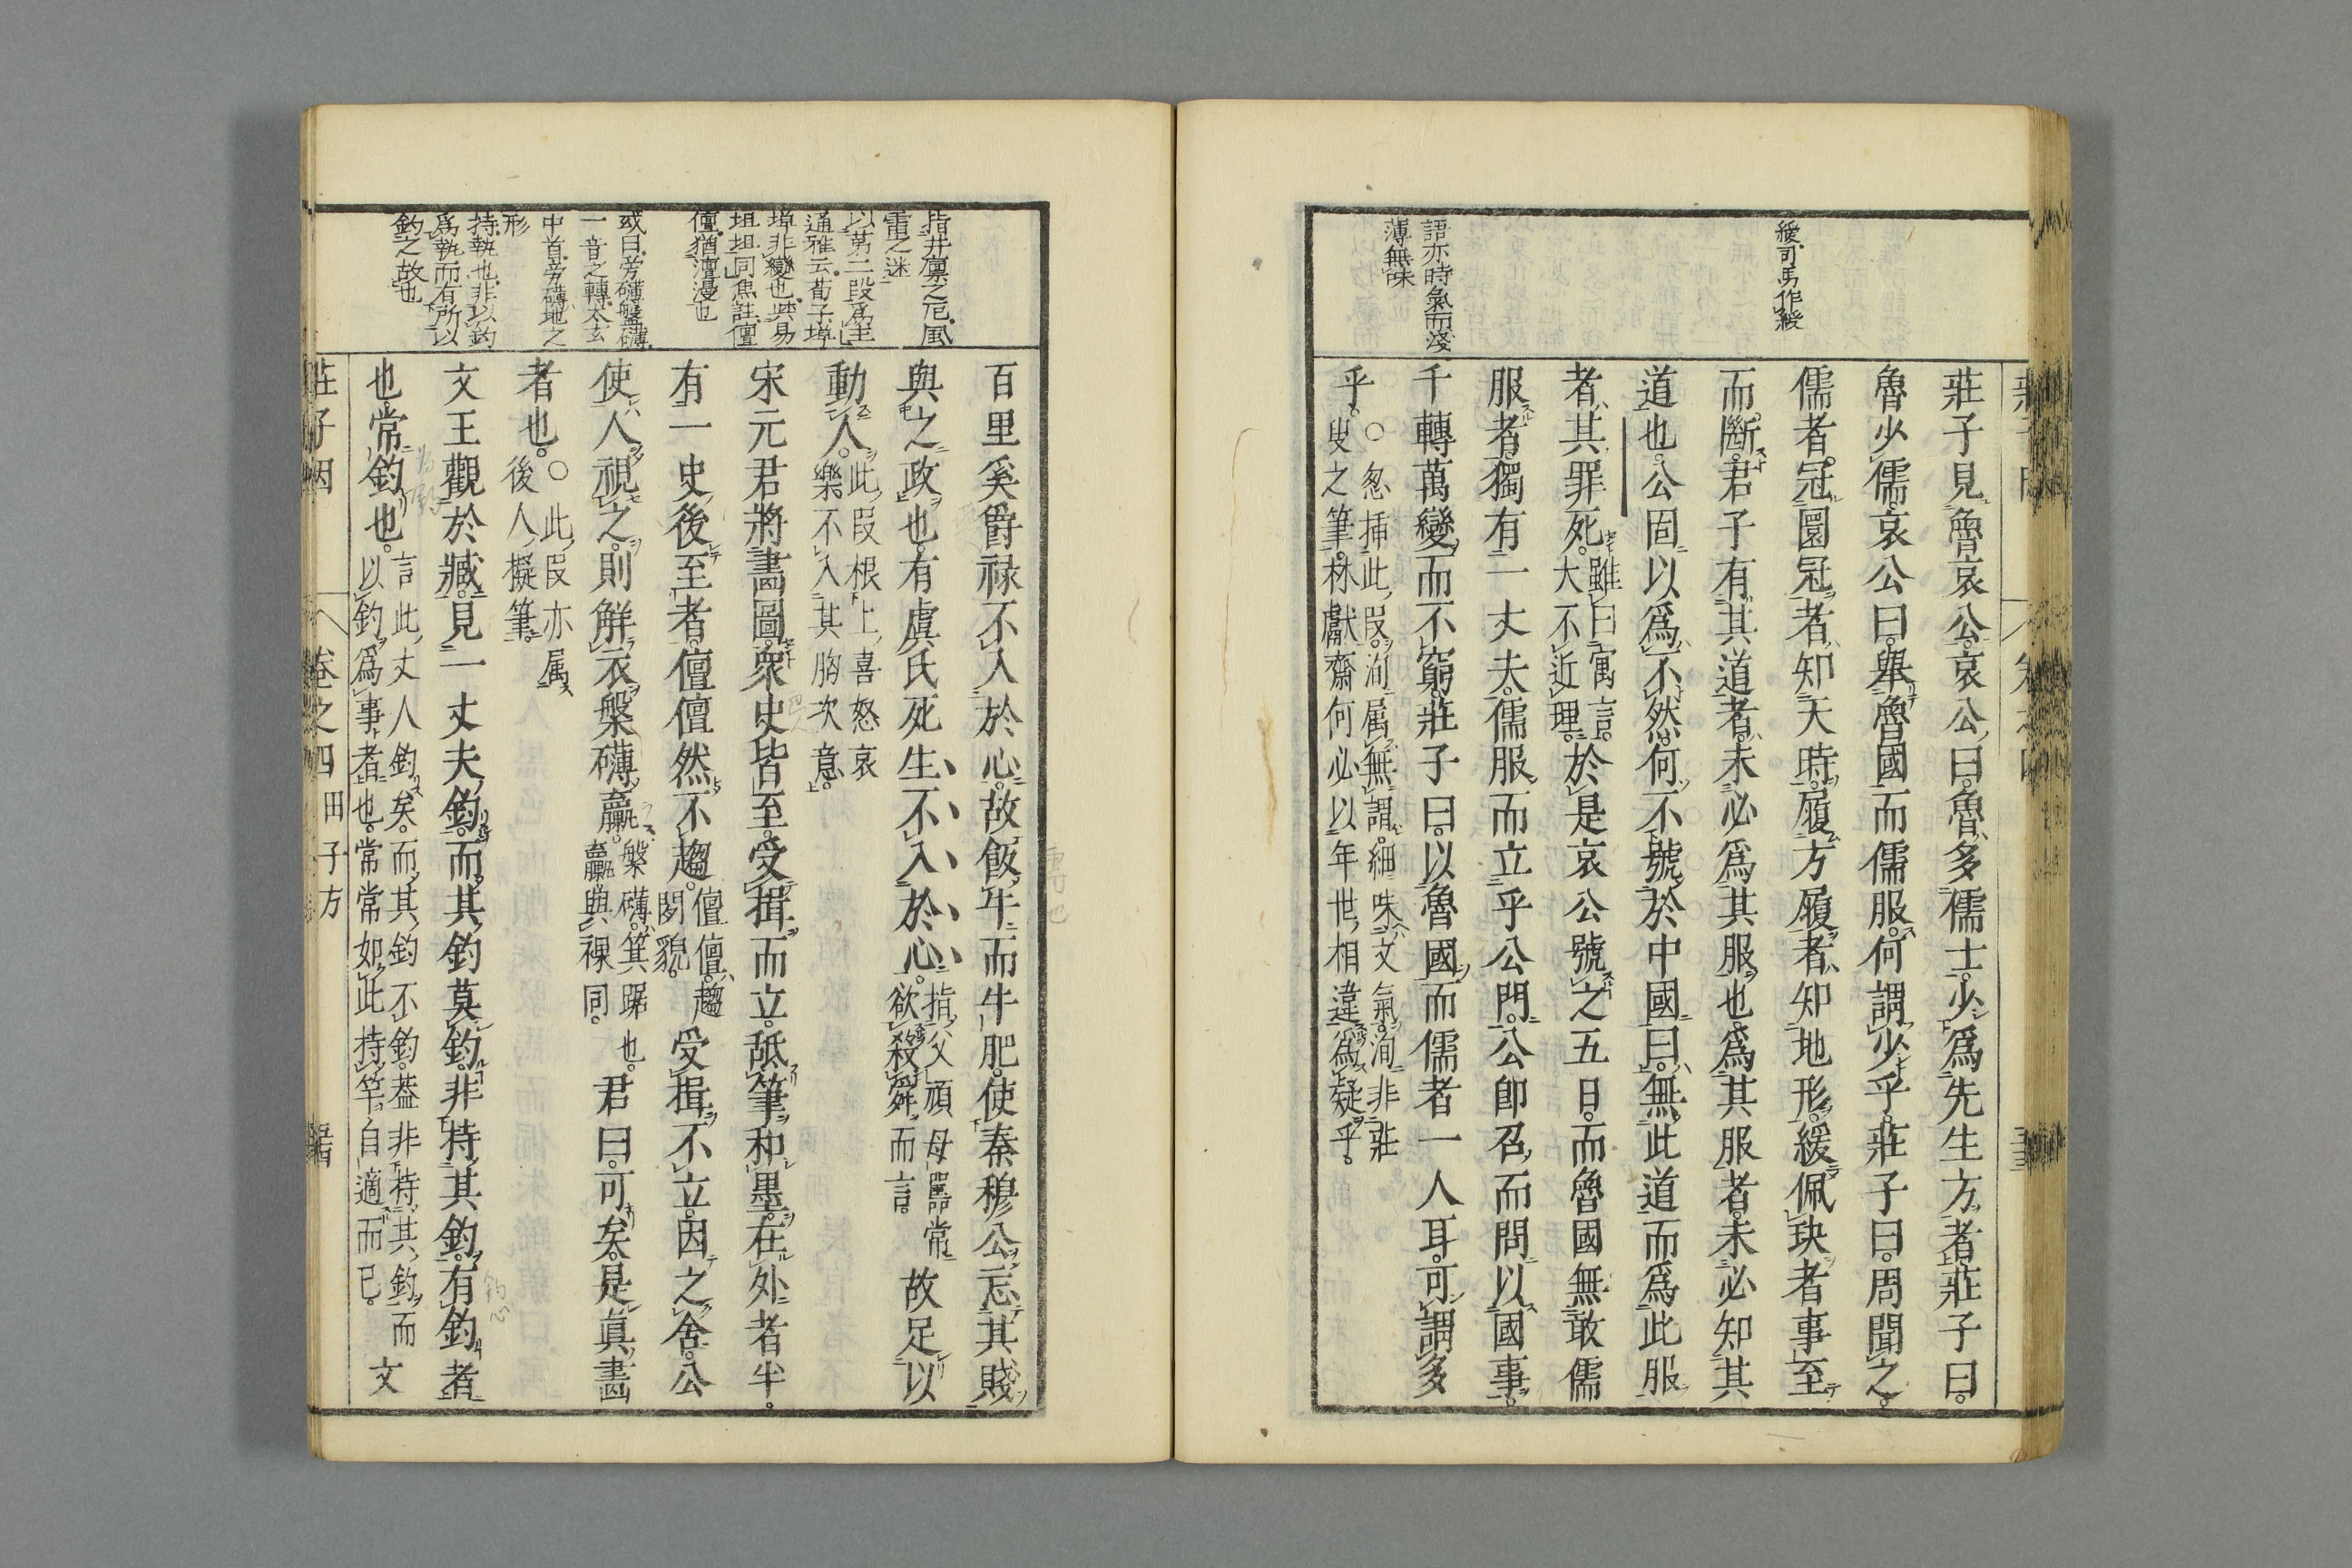 緩司馬作綬
語亦時氣而淺
薄無味
莊子見魯哀公。哀公曰。魯多儒士。少爲先生方者。莊子曰。
魯少儒。哀公曰。舉魯國而儒服。何謂少乎。莊子曰。周聞之。
儒者。冠圜冠者。知天時。履方履者。知地形。緩佩玦者。事至
而斷。君子有其道者。未必爲其服也。爲其服者。未必知其
道也。公固以爲不然。何不號於中國曰。無此道而爲此服
者。其罪死。雖曰寓言。大不近理。於是哀公號之五日。而魯國無敢儒
服者。獨有一丈夫。儒服而立乎公門。公即召而問以國事。
千轉萬變而不窮。莊子曰。以魯國而儒者一人耳。可謂多
乎。○忽挿此叚。洵属無謂。細味文氣。洵非莊叟之筆。林獻齋何必以年世相違爲疑乎。
指井廩之厄風
雷之迷
以第二段爲主
通雅云荀子埠
埠非變也與易
坦坦同焦註儃
儃猶澶漫也
或曰旁礴盤礴
一音之轉太玄
中首旁礴地之
形
持執也非以釣
爲執而有所以
釣之故也
百里奚爵禄不入於心。故飯牛而牛肥。使秦穆公忘其賤
與之政也。有虞氏死生不入於心。指父頑母嚚常欲殺舜而言。故足以
動人。此叚根上喜怒哀樂。不入其胸次意。
宋元君將畵圖。衆史皆至。受揖而立。舐筆和墨。在外者半。
有一史後至者。儃儃然不趨。儃儃趨閑貌。受揖不立。因之舍。公
使人視之。則解衣槃礴臝。槃礴箕踞也。臝與裸同。君曰。可矣。是眞畵
者也。○此叚亦属後人擬筆。
文王觀於臧。見一丈夫釣。而其釣莫釣。非持其釣。有釣者
也。常釣也。言此丈人釣矣。而其釣不釣。葢非持其釣而以釣爲事者也。常常如此持竿。自適而已。文
莊子因 卷之四 田子方